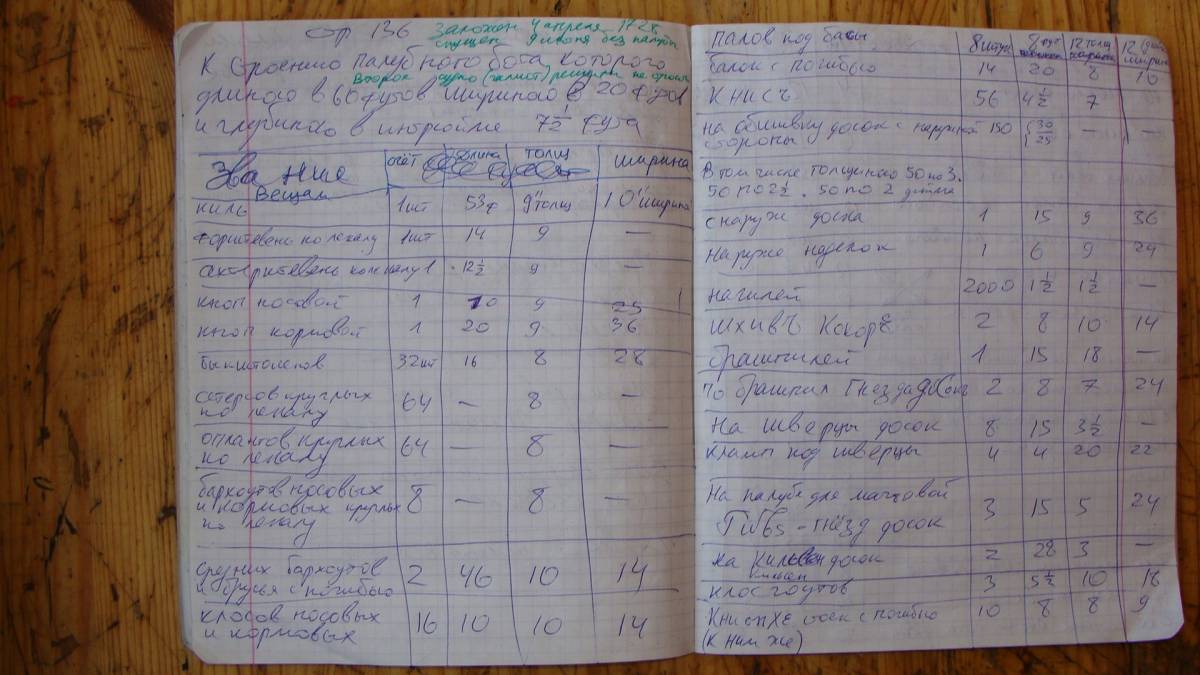 стр 136 Заложен 4 апреля 1728
спущен 9 июня без палубы
К строению палубного бота которого
Второе судно
длиною в 60 футов шириною в 20 фут
и глубиною в интрюйме 7 1/2 фута
Звание Вещам счёт длина толщ ширина
киль 1шт 53ф 9"толщ 10"ширина
форштевень по лекалу 1шт 14 9 —
ахтерштевень 1 12 1/2 9 —
кноп носовой 1 20 9 25
кноп кормовой 1 20 9 36
32шт 16 8 28
сетерсов круглых
по лекалу 64 — 8 —
оплангов круглых
по лекалу 64 — 8 —
бархоутов носовых
и кормовых круглых 8 — 8 —
по лекалу
средних бархоутов 2 46 10 14
и брусья с погибью
клосов носовых
и кормовых 16 10 10 14
палов под басы 8 штук 8 фут 12 толщ 12
балок с погибью 14 20 8 10
КНИСЪ 56 4 1/2 7
на обшивку досок с наружной 150 {30/25 — —
стороны
В том числе толщиною 50 по 3.
50 по 2 1/2. 50 по 2 дюйма
снаруж доска 1 15 9 36
Наруже наделок 1 6 9 24
нагилей 2000 1 1/2 1 1/2 —
ШХИВЪ Кокорѣ 2 8 10 14
брашпилей 1 15 18 —
гнезда 2 8 7 24
На шверцы досок 8 15 3 1/2 —
кламп под шверцы 4 4 20 22
На палубе для мачтовой
гнёзд досок 3 15 5 24
на кильсен досок 2 28 3 —
кильсен
клосгоутов 3 5 1/2 10 16
с погибью 10 8 8 9
(к ним же)